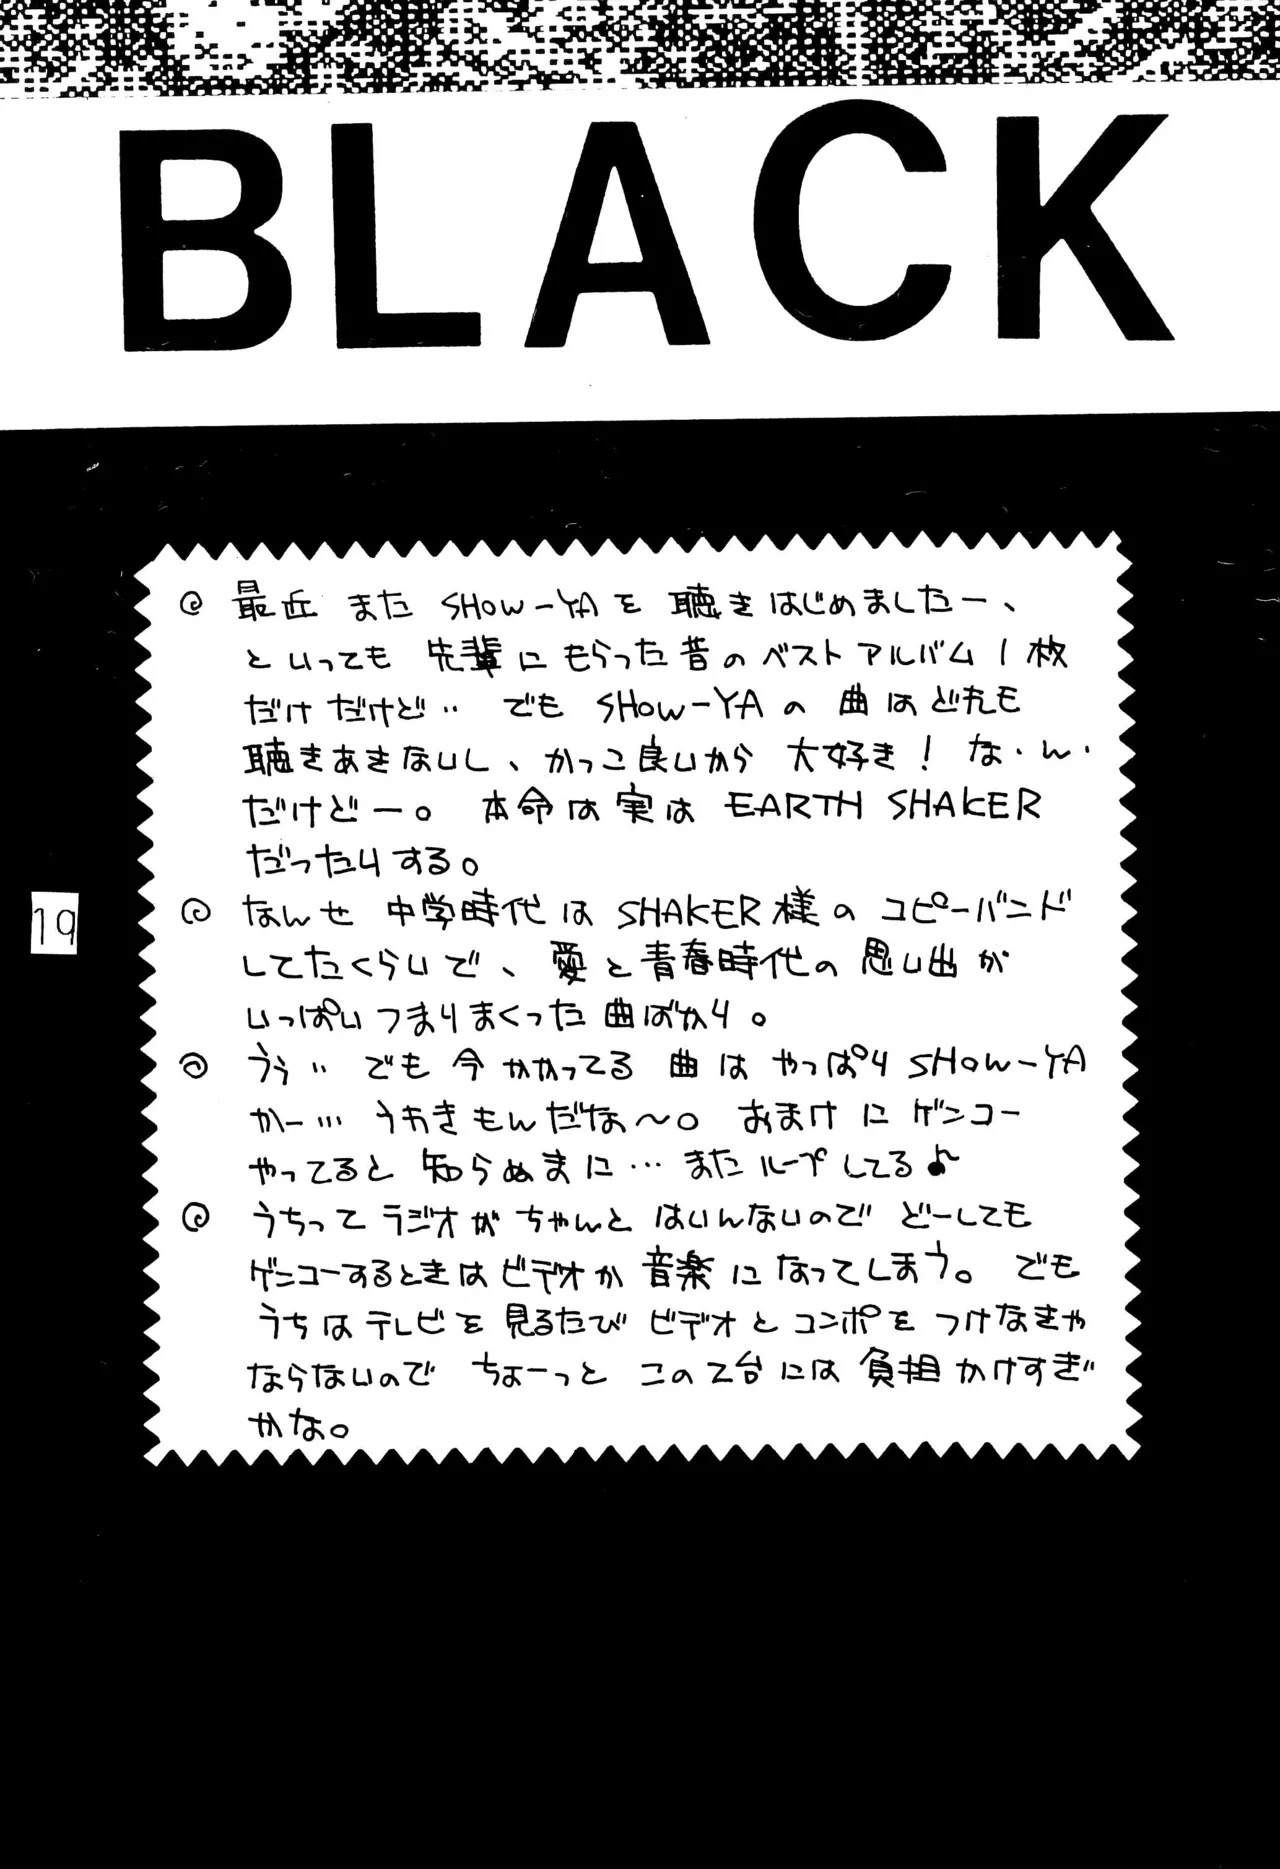 BLACK
◎ 最近 また SHOW-YAを 聴きはじめましたー、
といっても 先輩にもらった昔のベストアルバム1枚
だけだけど‥ でも SHOW-YAの 曲はどれも
聴きあきないし、かっこ良いから 大好き! な・ん・
だけどー。 本命は実は EARTH SHAKER
だったりする。
◎ なんせ 中学時代は SHAKER様の コピーバンド
してたくらいで、愛と青春時代の思い出が
いっぱいつまりまくった曲ばかり。
◎ うぅ‥ でも 今かかってる 曲は やっぱり SHOW-YA
かー… うわきもんだな〜。 おまけに ゲンコー
やってると 知らぬまに… また ループしてる♪
◎ うちって ラジオが ちゃんと はいんないので どーしても
ゲンコーするときは ビデオか 音楽に なってしまう。 でも
うちは テレビを 見るたび ビデオと コンポを つけなきゃ
ならないので ちょーっと この2台には 負担 かけすぎ
かな。
19